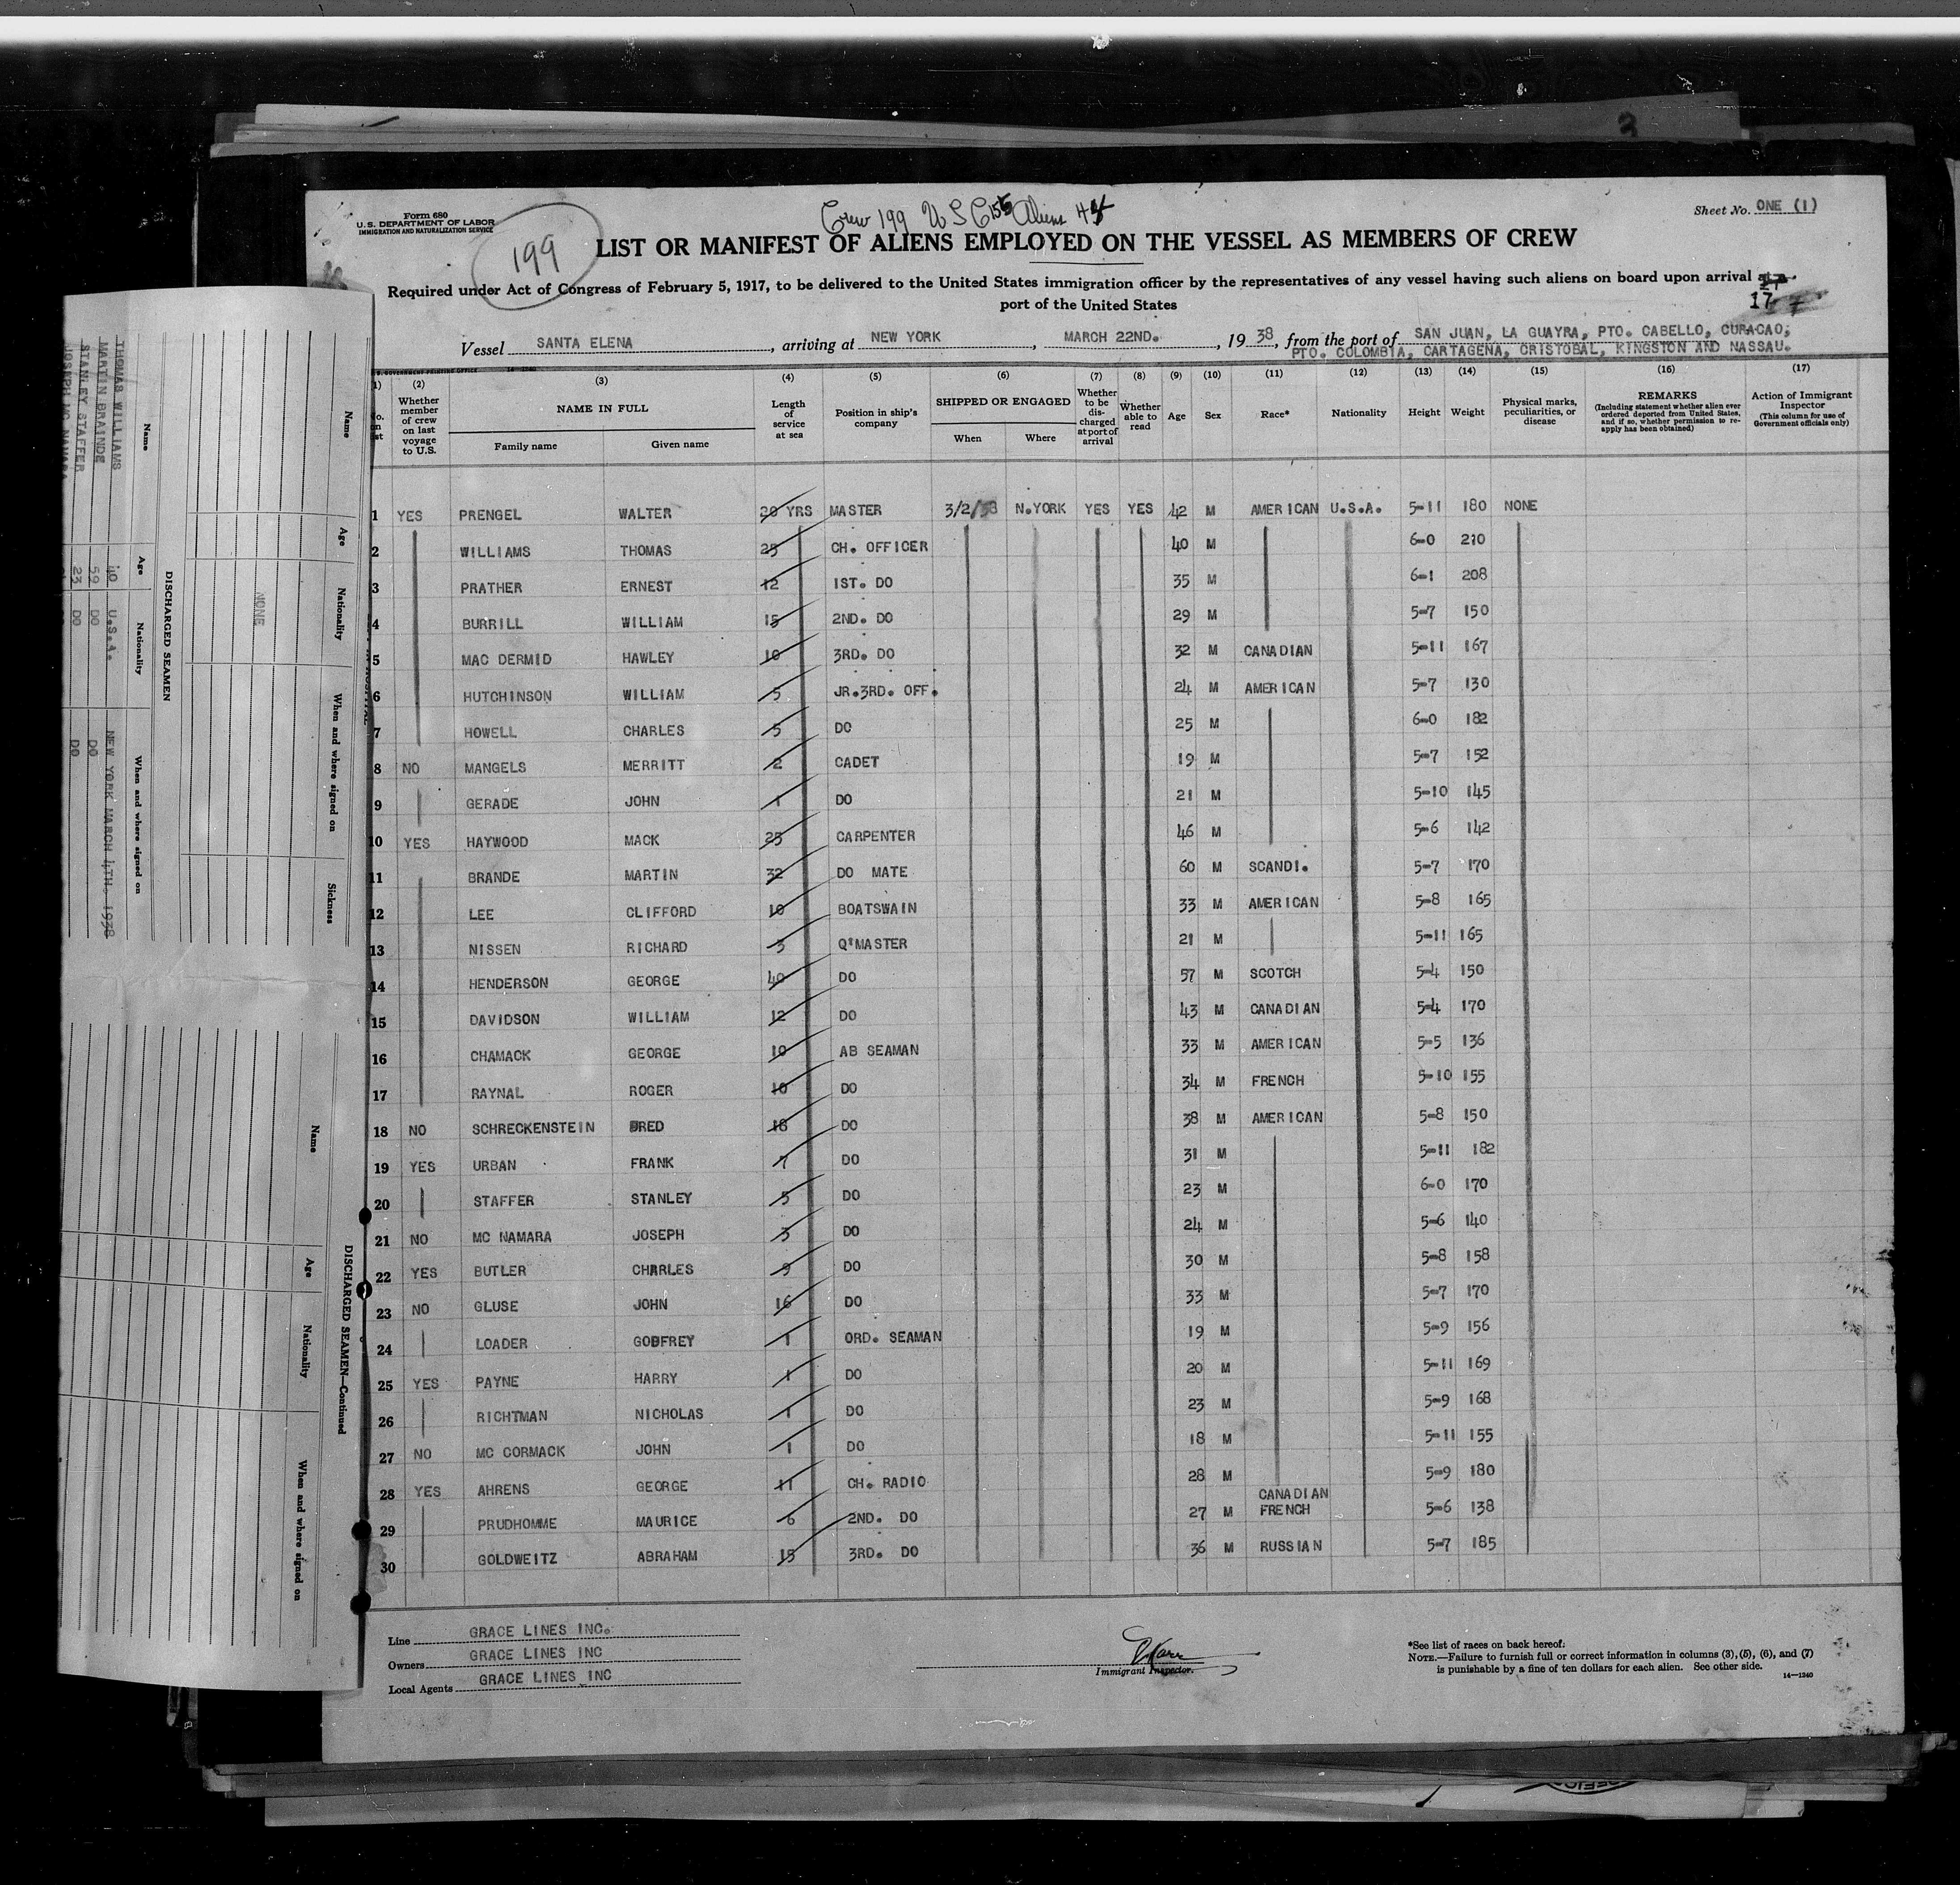 Form 680
U.S. DEPARTMENT OF LABOR
IMMIGRATION AND NATURALIZATION SERVICE
199
Crew 199 U S C 155 Aliens 44
Sheet No. ONE (1)
LIST OR MANIFEST OF ALIENS EMPLOYED ON THE VESSEL AS MEMBERS OF CREW
Required under Act of Congress of February 5, 1917, to be delivered to the United States immigration officer by the representatives of any vessel having such aliens on board upon arrival
port of the United States
17
Vessel SANTA ELENA, arriving at NEW YORK, MARCH 22ND., 19 38, from the port of SAN JUAN, LA GUAYRA, PTO. CABELLO, CURACAO,
PTO. COLOMBIA, CARTAGENA, CRISTOBAL, KINGSTON AND NASSAU.
(2) (3) (4) (5) (6) (7) (8) (9) (10) (11) (12) (13) (14) (15) (16) (17)
Whether member of crew on last voyage to U.S.
NAME IN FULL
Family name Given name
Length of service at sea
Position in ship's company
SHIPPED OR ENGAGED
When Where
Whether to be discharged at port of arrival
Whether able to read
Age
Sex
Race*
Nationality
Height
Weight
Physical marks, peculiarities, or disease
REMARKS
(Including statement whether alien ever ordered deported from United States, and if so, whether permission to reapply has been obtained)
Action of Immigrant Inspector
(This column for use of Government officials only)
1 YES PRENGEL WALTER 20 YRS MASTER 3/2/38 N.YORK YES YES 42 M AMERICAN U.S.A. 5-11 180 NONE
2 WILLIAMS THOMAS 25 CH. OFFICER 40 M 6-0 210
3 PRATHER ERNEST 12 1ST. DO 35 M 6-1 208
4 BURRILL WILLIAM 15 2ND. DO 29 M 5-7 150
5 MAC DERMID HAWLEY 10 3RD. DO 32 M CANADIAN 5-11 167
6 HUTCHINSON WILLIAM 5 JR.3RD. OFF. 24 M AMERICAN 5-7 130
7 HOWELL CHARLES 5 DO 25 M 6-0 182
8 NO MANGELS MERRITT 2 CADET 19 M 5-7 152
9 GERADE JOHN 1 DO 21 M 5-10 145
10 YES HAYWOOD MACK 25 CARPENTER 46 M 5-6 142
11 BRANDE MARTIN 32 DO MATE 60 M SCANDI. 5-7 170
12 LEE CLIFFORD 10 BOATSWAIN 33 M AMERICAN 5-8 165
13 NISSEN RICHARD 3 Q'MASTER 21 M 5-11 165
14 HENDERSON GEORGE 40 DO 57 M SCOTCH 5-4 150
15 DAVIDSON WILLIAM 12 DO 43 M CANADIAN 5-4 170
16 CHAMACK GEORGE 10 AB SEAMAN 33 M AMERICAN 5-5 136
17 RAYNAL ROGER 10 DO 34 M FRENCH 5-10 155
18 NO SCHRECKENSTEIN FRED 18 DO 38 M AMERICAN 5-8 150
19 YES URBAN FRANK 7 DO 31 M 5-11 182
20 STAFFER STANLEY 5 DO 23 M 6-0 170
21 NO MC NAMARA JOSEPH 3 DO 24 M 5-6 140
22 YES BUTLER CHARLES 9 DO 30 M 5-8 158
23 NO GLUSE JOHN 16 DO 33 M 5-7 170
24 LOADER GODFREY 1 ORD. SEAMAN 19 M 5-9 156
25 YES PAYNE HARRY 1 DO 20 M 5-11 169
26 RICHTMAN NICHOLAS 1 DO 23 M 5-9 168
27 NO MC CORMACK JOHN 1 DO 18 M 5-11 155
28 YES AHRENS GEORGE 11 CH. RADIO 28 M 5-9 180
29 PRUDHOMME MAURICE 6 2ND. DO 27 M CANADIAN FRENCH 5-6 138
30 GOLDWEITZ ABRAHAM 15 3RD. DO 36 M RUSSIAN 5-7 185
Line GRACE LINES INC.
Owners GRACE LINES INC
Local Agents GRACE LINES INC
Immigrant Inspector.
*See list of races on back hereof.
NOTE.—Failure to furnish full or correct information in columns (3), (5), (6), and (7)
is punishable by a fine of ten dollars for each alien. See other side.
14—1240
Name Age Nationality When and where signed on Sickness
NONE
DISCHARGED SEAMEN
Name Age Nationality When and where signed on
THOMAS WILLIAMS 40 U.S.A. NEW YORK MARCH 4TH. 1938
MARTIN BRAINDE 59 DO DO
STANLEY STAFFER 23 DO DO
JOSEPH MC NAMARA
DISCHARGED SEAMEN—Continued
Name Age Nationality When and where signed on